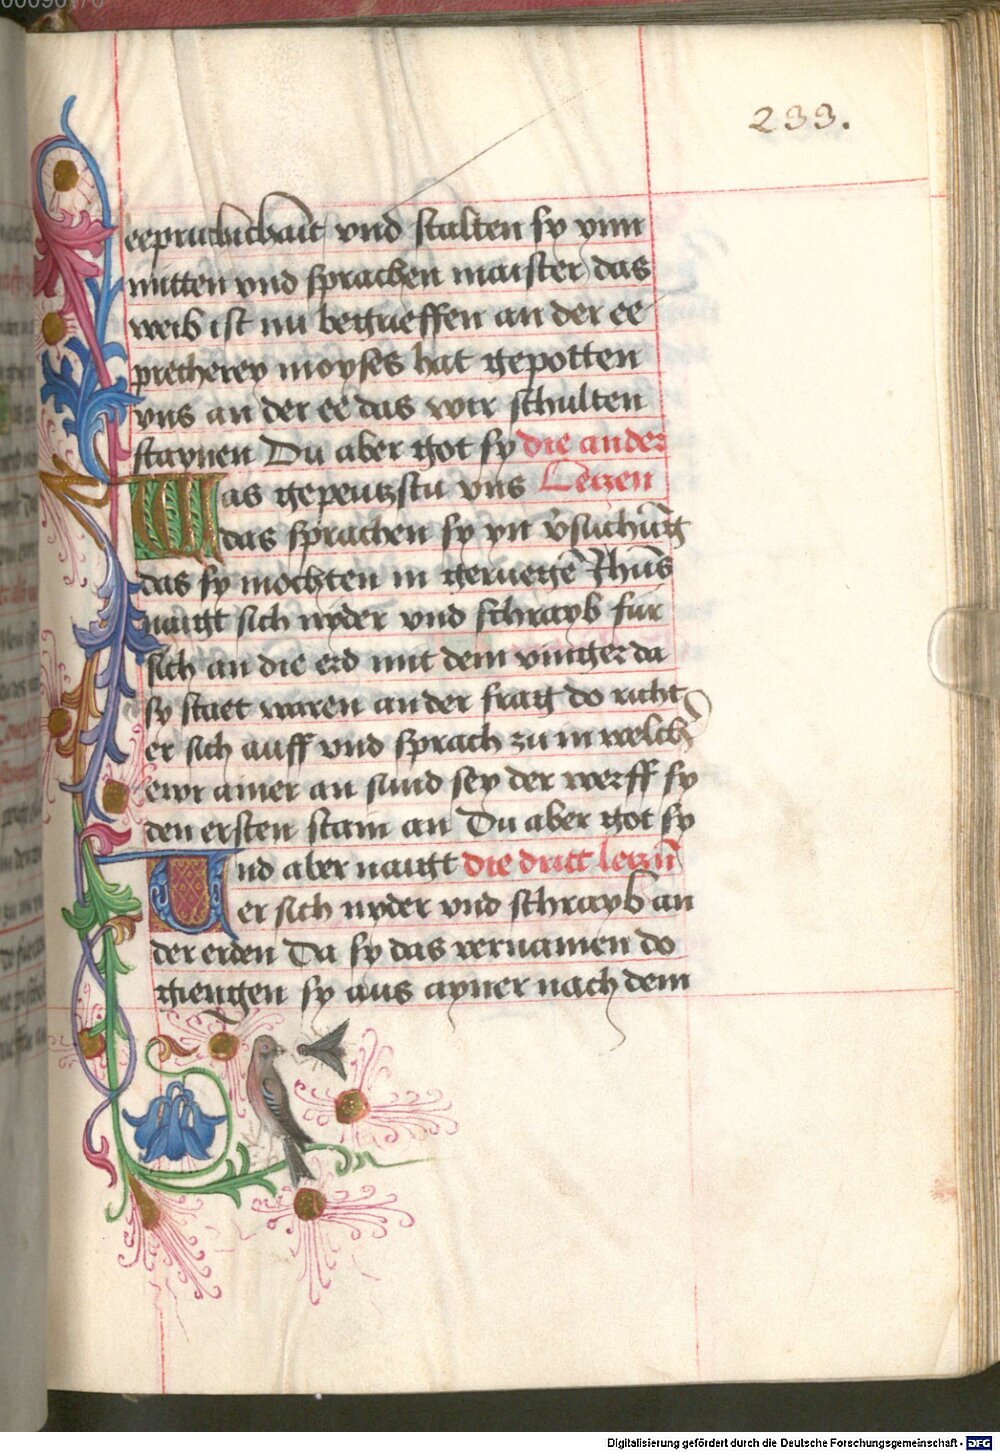 233.
eepruchichait vnd stalten sy ynn
mitten vnd sprachen maister das
weib ist nu begrieffen an der ee
precherey moyses hat gepotten
vns an der ee das wir schulten
staynen Du aber got sy die ander
Was gepeutzstu vns Leczen
das sprachen sy yn v̄suchūg
das sy mochten in geruegē Jhūs
naigt sich nyder vnd schrayb fur
sich an die erd mit dem vinger da
sy staet waren an der frag do richt
er sich auff vnd sprach zu in welch̄
ewr ainer an sund sey der werff sy
den ersten stain an Du aber got sy
Vnd aber naigt die dritt leczn̄
er sich nyder vnd schrayb an
der erden Da sy das vernamen do
giengen sy aus ayner nach dem
Digitalisierung gefördert durch die Deutsche Forschungsgemeinschaft - DFG